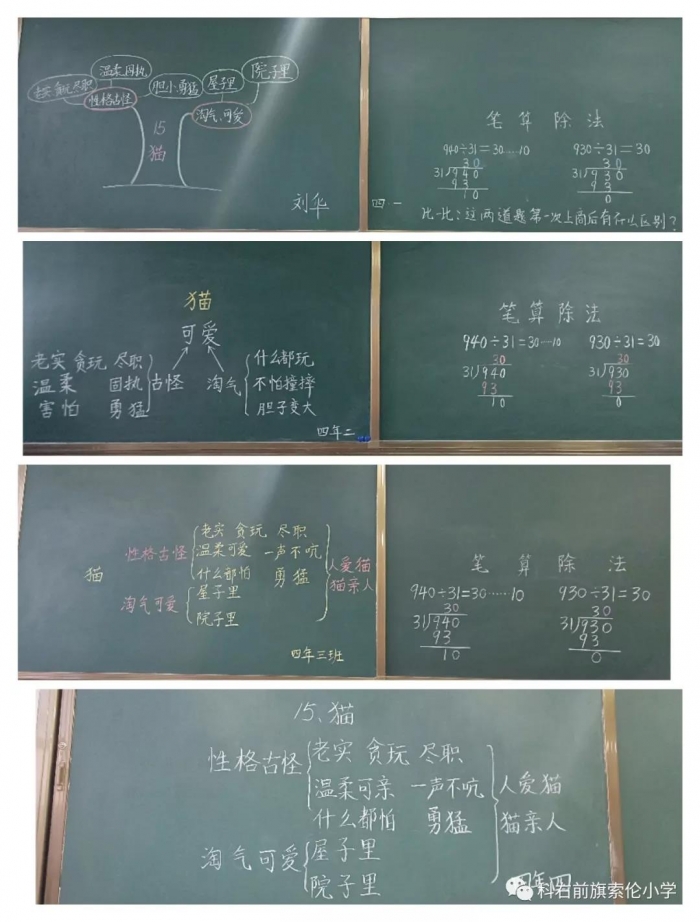 温柔固执
老实贪玩尽职
性格古怪
胆小勇猛
屋子里
院子里
淘气、可爱
15
猫
刘华
笔算除法
940÷31=30……10
930÷31=30
30
31 940
93
10
30
31 930
93
0
四一
比一比:这两道题第一次上商后有什么区别?
猫
可爱
老实 贪玩 尽职
温柔 固执
害怕 勇猛
古怪
淘气
什么都玩
不怕撞摔
胆子变大
四年二
笔算除法
940÷31=30…10
930÷31=30
30
31 940
93
10
30
31 930
93
0
猫
性格古怪
老实 贪玩 尽职
温柔可爱 一声不吭
什么都怕 勇猛
淘气可爱
屋子里
院子里
人爱猫
猫亲人
四年三班
笔算除法
940÷31=30……10
930÷31=30
30
31 940
93
10
30
31 930
93
0
15、猫
性格古怪
老实 贪玩 尽职
温柔可亲 一声不吭
什么都怕 勇猛
淘气可爱
屋子里
院子里
人爱猫
猫亲人
四年四
科右前旗索伦小学